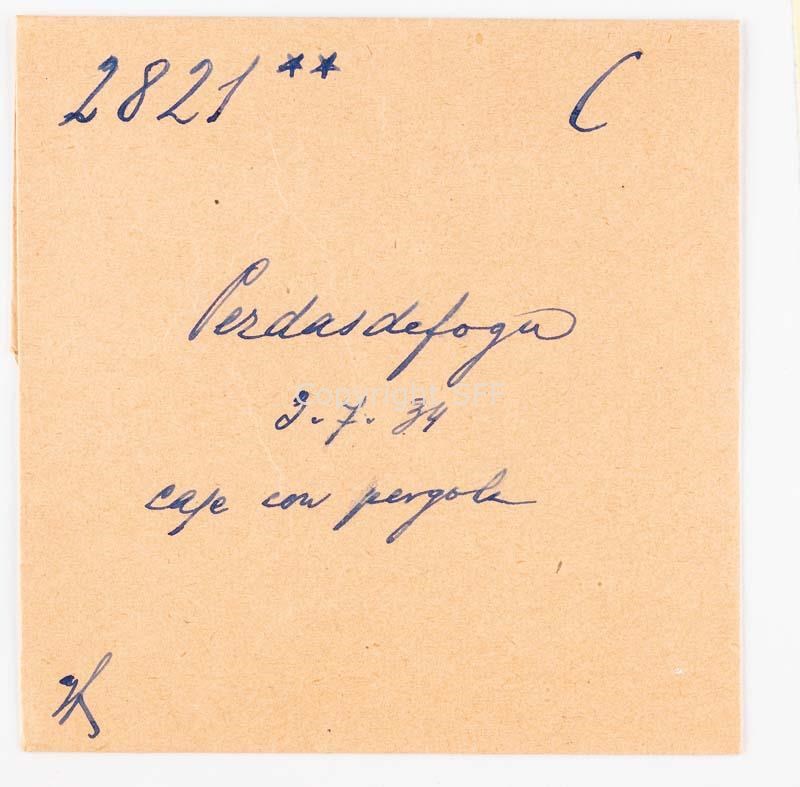 2821 ** C
Perdasdefogu
Copyright SFF
3.7.34
case con pergola